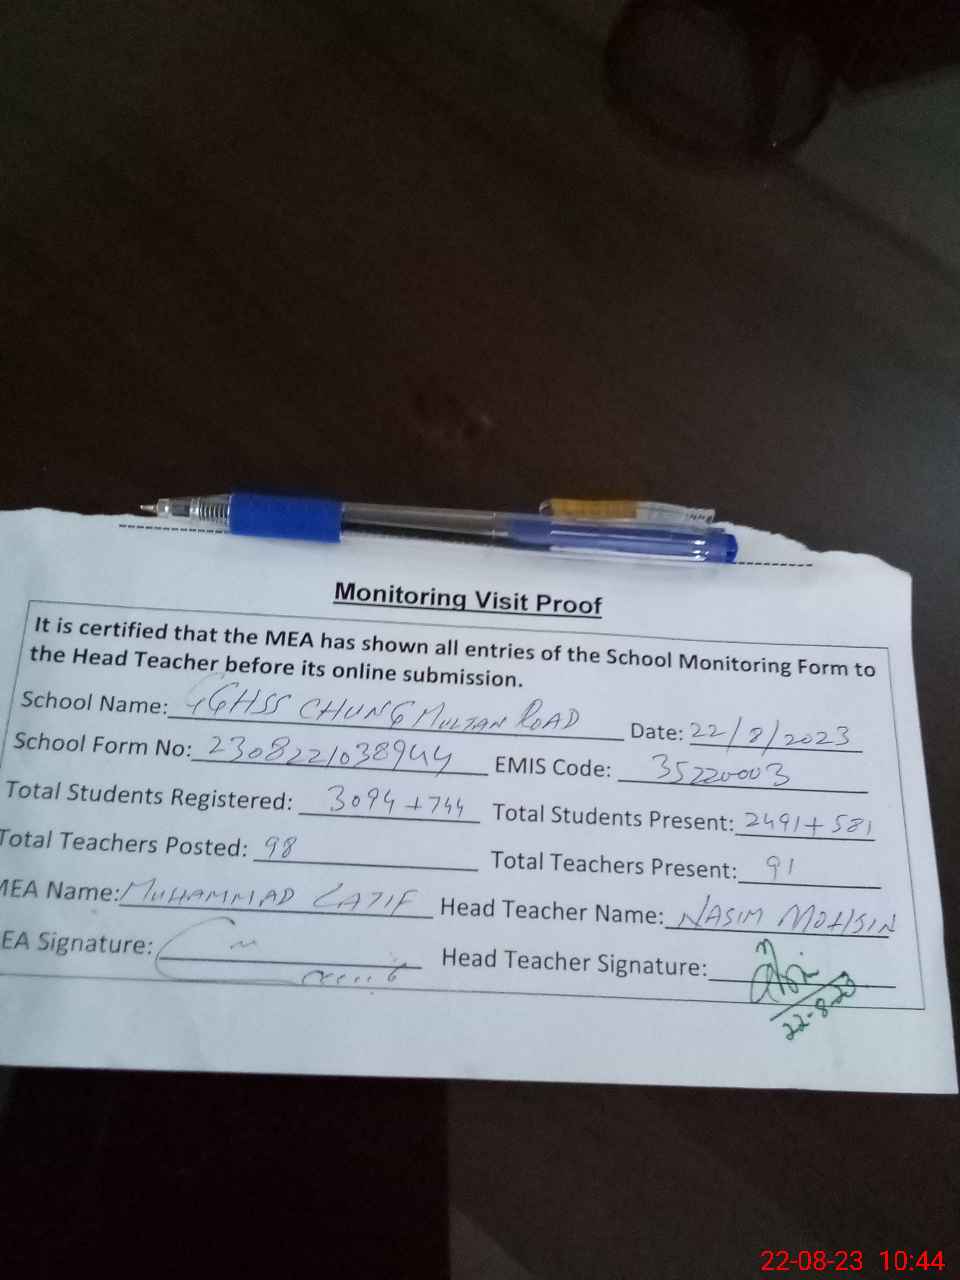 Monitoring Visit Proof
It is certified that the MEA has shown all entries of the School Monitoring Form to
the Head Teacher before its online submission.
School Name: GGHSS CHUNG MULTAN ROAD Date: 22/8/2023
School Form No: 2308221038944 EMIS Code: 35220003
Total Students Registered: 3094+744 Total Students Present: 2491+581
Total Teachers Posted: 98 Total Teachers Present: 91
MEA Name: MUHAMMAD LATIF Head Teacher Name: NASIM MOHSIN
EA Signature: Head Teacher Signature:
22-8-23
22-08-23 10:44